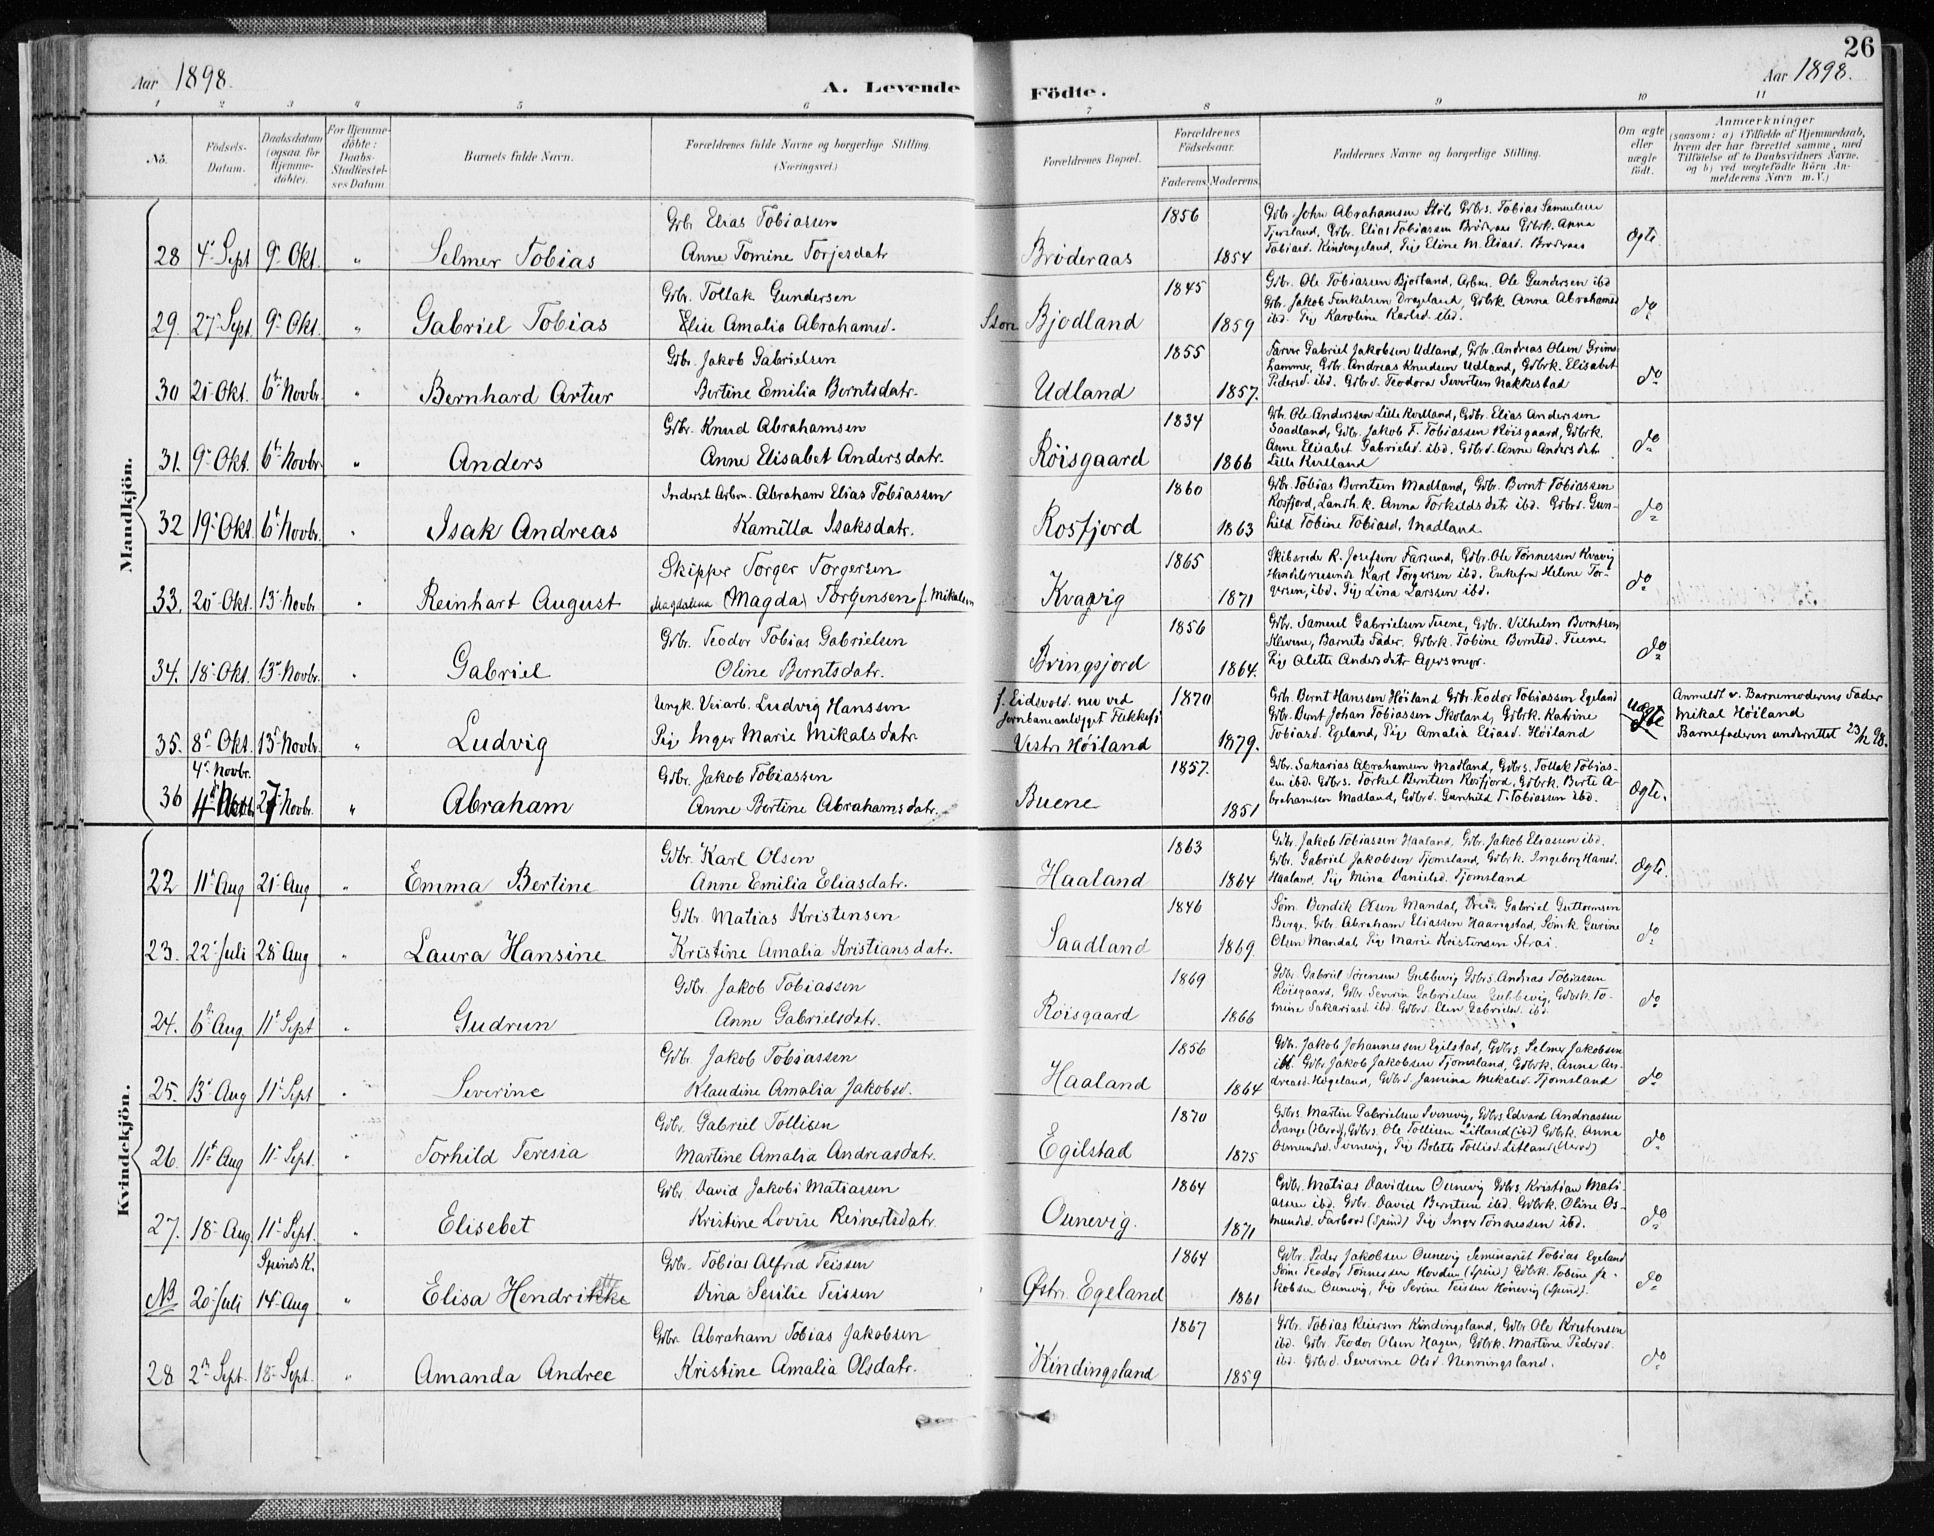 26
Aar 1898.
A. Levende Födte.
Aar 1898.
1 2 3 4 5 6 7 8 9 10 11
No. Födsels-Datum. Daabsdatum (ogsaa for Hjemme-döbte). For Hjemme-döbte: Daabs-Stadfæstel-ses Datum Barnets fulde Navn. Forældrenes fulde Navne og borgerlige Stilling. (Næringsvei.) Forældrenes Bopæl. Forældrenes Födselsaar. Faderens. Moderens. Faddernes Navne og borgerlige Stilling. Om ægte eller uægte födt. Anmærkninger (saasom: a) i Tilfælde af Hjemmedaab, hvem der har forrettet samme, med Tilföielse af to Daabsvidners Navne, og b) ved uægtefödte Börn An-melderens Navn m. V.)
Mandkjön.
Gdbr. Elias Tobiassen 1856 Gdbr. John Abrahamsen Stöle Gdbrs. Tobias Samuelsen
Gdbr. Elias Tobiassen Bröderaas Gdbrk. Anna
28 4de Sept 9de Okt. " Selmer Tobias Anne Tomine Torjesdatr Bröderaas 1854 Tobiasd. Kindingsland, Pig. Eline M. Eliasd. Bröderaas Ægte.
Gdbr. Tollak Gundersen 1845 Gdbr. Ole Tobiassen Bjodland, Arbm. Ole Gundersen ibd
Gdbr. Jakob Drageland, Gdbrk. Anna Abrahamsd
29. 27de Sept. 9de Okt. " Gabriel Tobias Elise Amalia Abrahamsd. Store Bjodland 1859 ibd. Pig Karoline Karlsd. ibd. do
Gdbr. Jakob Gabrielsen 1855 Gabriel Jakobsen Udland, Gdbr. Andreas Olsen Grims-
hammer, Gdbr. Andreas Knudsen Udland, Gdbrk. Elisabet
30 2de Okt. 6te Novbr. " Bernhard Artur Bertine Emilia Berntsdatr. Udland 1857. Pedersd. ibd. Gdbrd. Teodora Severtsen Nakkestad do
Gdbr. Knud Abrahamsen 1834 Gdbr. Ole Anderssen Lille Kvilland, Gdbr. Elias Anderssen
Saadland, Gdbr. Jakob T. Tobiassen Röisgaard, Gdbrk.
Anne Elisabet Gabrielsd. ibd. Gdbrd. Anne Andersdatr
31. 9de Okt. 6te Novbr. " Anders Anne Elisabet Andersdatr. Röisgaard 1866 Lille Kvilland do
Inderst Arbm. Abraham Elias Tobiassen 1860 Gdbr. Tobias Berntsen Madland, Gdbr. Bernt Tobiassen
Rosfjord, Landh. k. Anna Torkildsdatr ibd. Gdbrd. Gun-
32 19de Okt. 6te Novbr. " Isak Andreas Kamilla Isaksdatr. Rosfjord 1863 hild Tobine Tobiasd. Madland do
Skipper Torger Torgersen 1865 Skibsrede R. Josefsen Farsund, Gdbr. Ole Tönnessen Kvavig
Handelsreisende Karl Torgersen ibd. Enkefru Helene Tor-
33. 20de Okt. 13de Novbr " Reinhart August Magdalena (Magda) Torgersen f. Mikalsen Kvavig 1871 gersen, ibd. Pig Lina Larssen ibd. do
Gdbr. Teodor Tobias Gabrielsen 1856 Gdbr. Samuel Gabrielsen Tuene, Gdbr. Vilhelm Berntsen
Klevene, Barnets Fader. Gdbrk. Tobine Berntsd. Tuene
34. 18de Okt. 13de Novbr. " Gabriel Oline Berntsdatr. Bringsjord 1864. Pig Alette Andersdatr Agersmyr. do
Ungk. Veiarb. Ludvig Hanssen f. Eidsvold. nu ved 1870 Gdbr. Bernt Hanssen Höiland Gdbr. Teodor Tobiassen Egeland uægte Anmeldt v. Barnemoderens Fader
Jernbaneanlægget Flekkefj. Gdbr. Bernt Johan Tobiassen Skoland, Gdbrk. Katrine Mikal Höiland
35. 8de Okt. 13de Novbr. " Ludvig Pig Inger Marie Mikalsdatr. Vestre Höiland 1879. Tobiasd. Egeland, Pig Amalia Eliasd. Höiland Barnefaderen underrettet 23/12 98.
4de Novbr. Gdbr. Jakob Tobiassen 1857. Gdbr. Sakarias Abrahamsen Madland, Gdbrs. Tollak Tobias-
sen ibd. Gdbrs. Torkel Berntsen Rosfjord, Gdbrk. Berte A-
36 4de Novbr. 27de Novbr. " Abraham Anne Bertine Abrahamsdatr. Buene 1851 brahamsen Madland, Gdbrd. Gunhild T. Tobiassen ibd. Ægte.
Kvindekjön.
Gdbr. Karl Olsen 1863 Gdbr. Jakob Tobiassen Haaland, Gdbr. Jakob Eliassen ibd.
Gdbr. Gabriel Jakobsen Tjomsland, Gdbrk. Ingeborg Hansd.
22 11te Aug 21de Aug " Emma Bertine Anne Emilia Eliasdatr. Haaland 1864 Haaland, Pig Mina Danielsd. Tjomsland Ægte.
Gdbr. Matias Kristensen 1846 Söm. Bendik Olsen Mandal, Gabriel Guttormsen
Berge, Gdbr. Abraham Eliassen Haarigstad, Söm k. Gurine
23. 22de Juli 28de Aug " Laura Hansine Kristine Amalia Kristiansdatr. Saadland 1869. Olsen Mandal, Pig Marie Kristensen Strai. do
Gdbr. Jakob Tobiassen 1869 Gdbr. Gabriel Sörensen Gubbevig Gdbrs. Andreas Tobiassen
Röisgaard, Gdbr Severin Gabrielsen Gubbevig, Gdbrk. To-
24. 6te Aug 11te Sept " Gudrun Anne Gabrielsdatr. Röisgaard 1866 mine Sakariasd. ibd. Gdbrd. Elen Gabrielsd. ibd. do
Gdbr Jakob Tobiassen 1856 Gdbr. Jakob Johannessen Egilstad, Gdbrs. Selmer Jakobsen
ibd. Gdbr Jakob Jakobsen Tjomsland, Gdbrk. Anna An-
25. 13de Aug 11te Sept " Severine Klaudine Amalia Jakobsd. Haaland 1864 dreasd. Högeland, Gdbrd. Jasmina Mikalsd. Tjomsland do
Gdbr. Gabriel Tollisen 1870 Gdbrs. Martin Gabrielsen Svenevig, Gdbrs Edvard Andreassen
Gdbrs. Ole Tollisen Litland (ibd) Gdbrk. Anna
26. 11te Aug 11te Sept. " Torhild Teresia Martine Amalia Andreasdatr. Egilstad 1875 Osmundsd. Svenevig, Pig Bolette Tollisd. Litland (Herad) do
Gdbr David Jakobi Matiassen 1864 Gdbr. Matias Davidsen Ounevig Gdbrs. Kristian Mati-
assen ibd. Gdbr. David Berntsen ibd. Gdbrk. Oline Os-
27. 18de Aug 11te Sept. " Elisebet Kristine Lovise Reinertsdatr. Ounevig. 1871 mundsd. Farbrod (Spind) Pig Inger Tönnessen ibd. do
Spinds K. Gdbr. Tobias Alfred Teissen 1864 Gdbr. Peder Jakobsen Ounevig Seminarist Tobias Egeland
Söm. Teodor Tönnessen Hovden (Spind) Gdbrk. Tobine Ja-
NB 20de Juli 14de Aug " Elisa Hendrikke Dina Sesilie Teissen Östre Egeland 1861 kobsen Ounevig, Pig Serine Teissen Hönevig (Spind). do
Gdbr. Abraham Tobias Jakobsen 1867 Gdbr. Tobias Reiersen Kindingsland, Gdbr Ole Kristensen
ibd. Gdbr. Teodor Olsen Hagen, Gdbrk. Martine Pedersd.
28 2den Sept. 18de Sept. " Amanda Andree Kristine Amalia Olsdatr. Kindingsland 1859 ibd. Gdbrd. Severine Olsd. Nenningsland. do